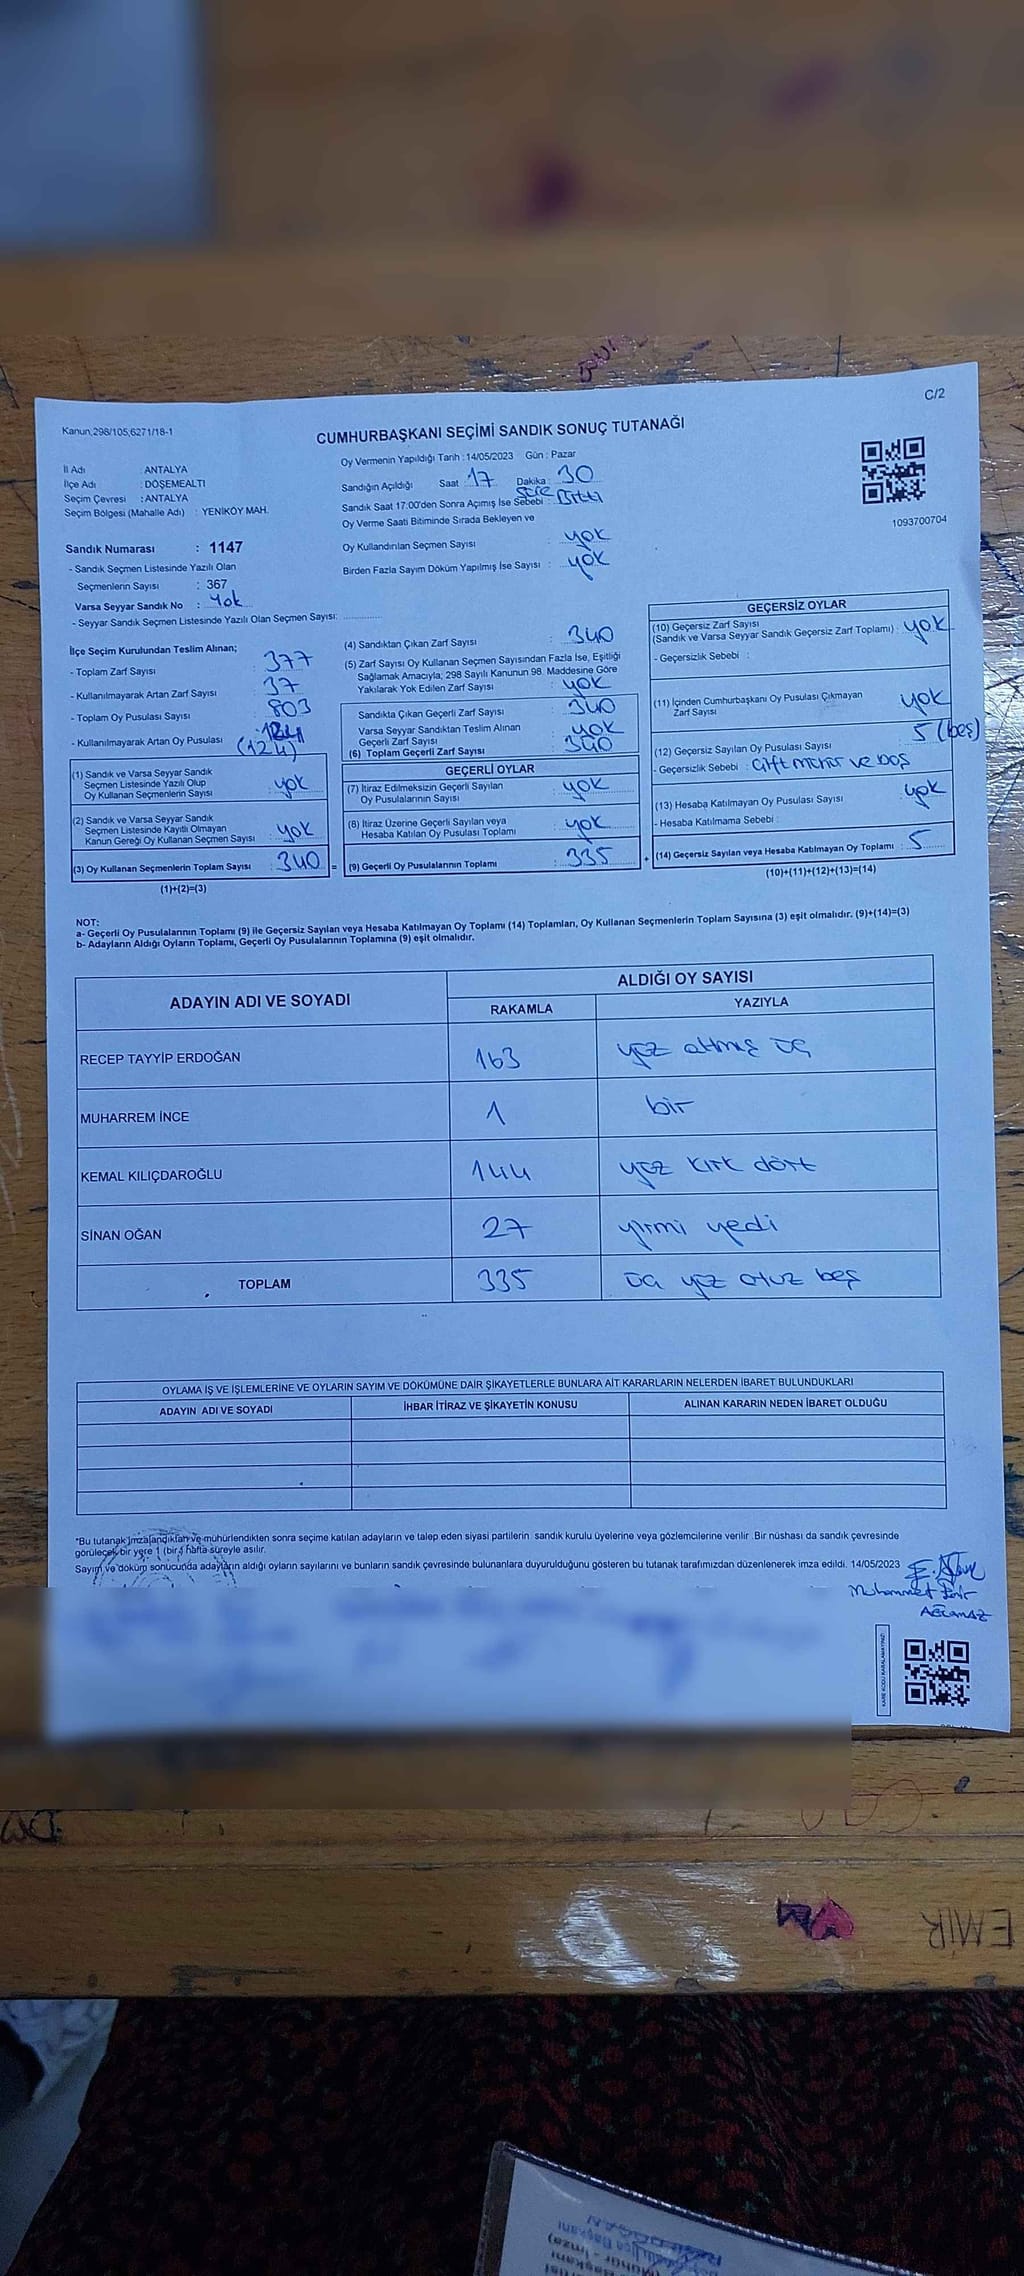 C/2
Kanun,298/105,6271/18-1
CUMHURBAŞKANI SEÇİMİ SANDIK SONUÇ TUTANAĞI
İl Adı : ANTALYA
İlçe Adı : DÖŞEMEALTI
Seçim Çevresi : ANTALYA
Seçim Bölgesi (Mahalle Adı) : YENİKÖY MAH.
Oy Vermenin Yapıldığı Tarih : 14/05/2023 Gün : Pazar
Sandığın Açıldığı Saat : 17 Dakika : 30
Sandık Saat 17:00'den Sonra Açımış İse Sebebi : Süre Bitti
Oy Verme Saati Bitiminde Sırada Bekleyen ve
Oy Kullandırılan Seçmen Sayısı : yok
Birden Fazla Sayım Döküm Yapılmış İse Sayısı : yok
1093700704
Sandık Numarası : 1147
- Sandık Seçmen Listesinde Yazılı Olan
Seçmenlerin Sayısı : 367
Varsa Seyyar Sandık No : Yok
- Seyyar Sandık Seçmen Listesinde Yazılı Olan Seçmen Sayısı:
İlçe Seçim Kurulundan Teslim Alınan;
- Toplam Zarf Sayısı : 377
- Kullanılmayarak Artan Zarf Sayısı : 37
- Toplam Oy Pusulası Sayısı : 803
- Kullanılmayarak Artan Oy Pusulası : 124
(124)
(1) Sandık ve Varsa Seyyar Sandık
Seçmen Listesinde Yazılı Olup
Oy Kullanan Seçmenlerin Sayısı : yok
(2) Sandık ve Varsa Seyyar Sandık
Seçmen Listesinde Kayıtlı Olmayan
Kanun Gereği Oy Kullanan Seçmen Sayısı : yok
(3) Oy Kullanan Seçmenlerin Toplam Sayısı : 340 =
(1)+(2)=(3)
(4) Sandıktan Çıkan Zarf Sayısı : 340
(5) Zarf Sayısı Oy Kullanan Seçmen Sayısından Fazla İse, Eşitliği
Sağlamak Amacıyla; 298 Sayılı Kanunun 98. Maddesine Göre
Yakılarak Yok Edilen Zarf Sayısı : yok
Sandıkta Çıkan Geçerli Zarf Sayısı : 340
Varsa Seyyar Sandıktan Teslim Alınan
Geçerli Zarf Sayısı : yok
(6) Toplam Geçerli Zarf Sayısı : 340
GEÇERLİ OYLAR
(7) İtiraz Edilmeksizin Geçerli Sayılan
Oy Pusulalarının Sayısı : yok
(8) İtiraz Üzerine Geçerli Sayılan veya
Hesaba Katılan Oy Pusulası Toplamı : yok
(9) Geçerli Oy Pusulalarının Toplamı : 335 +
GEÇERSİZ OYLAR
(10) Geçersiz Zarf Sayısı
(Sandık ve Varsa Seyyar Sandık Geçersiz Zarf Toplamı) : yok
- Geçersizlik Sebebi :
(11) İçinden Cumhurbaşkanı Oy Pusulası Çıkmayan
Zarf Sayısı : yok
(12) Geçersiz Sayılan Oy Pusulası Sayısı : 5 (beş)
- Geçersizlik Sebebi : Çift mühür ve boş
(13) Hesaba Katılmayan Oy Pusulası Sayısı : yok
- Hesaba Katılmama Sebebi :
(14) Geçersiz Sayılan veya Hesaba Katılmayan Oy Toplamı : 5
(10)+(11)+(12)+(13)=(14)
NOT:
a- Geçerli Oy Pusulalarının Toplamı (9) ile Geçersiz Sayılan veya Hesaba Katılmayan Oy Toplamı (14) Toplamları, Oy Kullanan Seçmenlerin Toplam Sayısına (3) eşit olmalıdır. (9)+(14)=(3)
b- Adayların Aldığı Oyların Toplamı, Geçerli Oy Pusulalarının Toplamına (9) eşit olmalıdır.
ADAYIN ADI VE SOYADI ALDIĞI OY SAYISI
RAKAMLA YAZIYLA
RECEP TAYYİP ERDOĞAN 163 yüz altmış üç
MUHARREM İNCE 1 bir
KEMAL KILIÇDAROĞLU 144 yüz kırk dört
SİNAN OĞAN 27 yirmi yedi
TOPLAM 335 üç yüz otuz beş
OYLAMA İŞ VE İŞLEMLERİNE VE OYLARIN SAYIM VE DÖKÜMÜNE DAİR ŞİKAYETLERLE BUNLARA AİT KARARLARIN NELERDEN İBARET BULUNDUKLARI
ADAYIN ADI VE SOYADI İHBAR İTİRAZ VE ŞİKAYETİN KONUSU ALINAN KARARIN NEDEN İBARET OLDUĞU
*Bu tutanak imzalandıktan ve mühürlendikten sonra seçime katılan adayların ve talep eden siyasi partilerin sandık kurulu üyelerine veya gözlemcilerine verilir. Bir nüshası da sandık çevresinde
görülecek bir yere 1 (bir) hafta süreyle asılır.
Sayım ve döküm sonucunda adayların aldığı oyların sayılarını ve bunların sandık çevresinde bulunanlara duyurulduğunu gösteren bu tutanak tarafımızdan düzenlenerek imza edildi. 14/05/2023
Muhammet
KARE KODU KARALAMAYINIZ!
EMİR